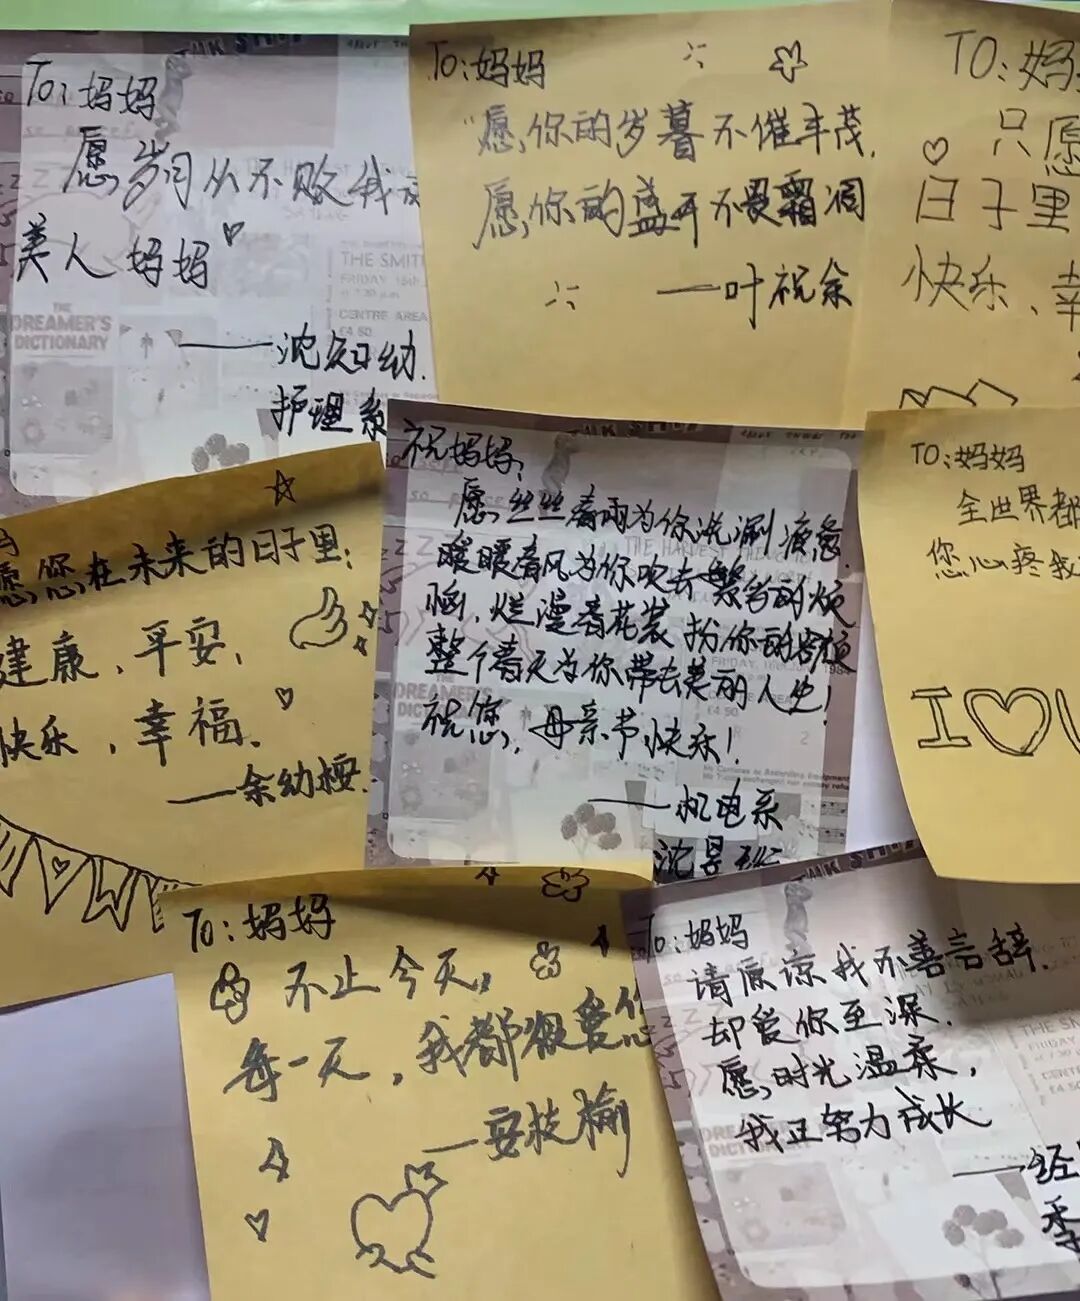 To:妈妈
愿岁月从不败我
美人妈妈
——沈知幼.
护理系
To:妈妈
"愿你的岁暮不催丰茂.
愿你的盛开不畏霜凋
——叶祝余
TO:妈
只愿
日子里
快乐、幸
愿您在未来的日子里:
建康、平安、
快乐,幸福.
——余幼桉.
祝妈妈:
愿丝丝春雨为你洗涮疲惫.
暖暖春风为你吹去繁多的烦
恼,烂漫春花装扮你的容颜
整个春天为你带去美丽人生!
祝您,母亲节快乐!
——机电系
沈昱
TO:妈妈
全世界都
您心疼我
I
To:妈妈
不止今天,
每一天,我都很爱您
—安枝榆
To:妈妈
请原谅我不善言辞.
却爱你至深.
愿时光温柔,
我正努力成长
——经
季
THE
DREAMER'S
DICTIONARY
THE SMIT
CENTRE AREA
£4 50